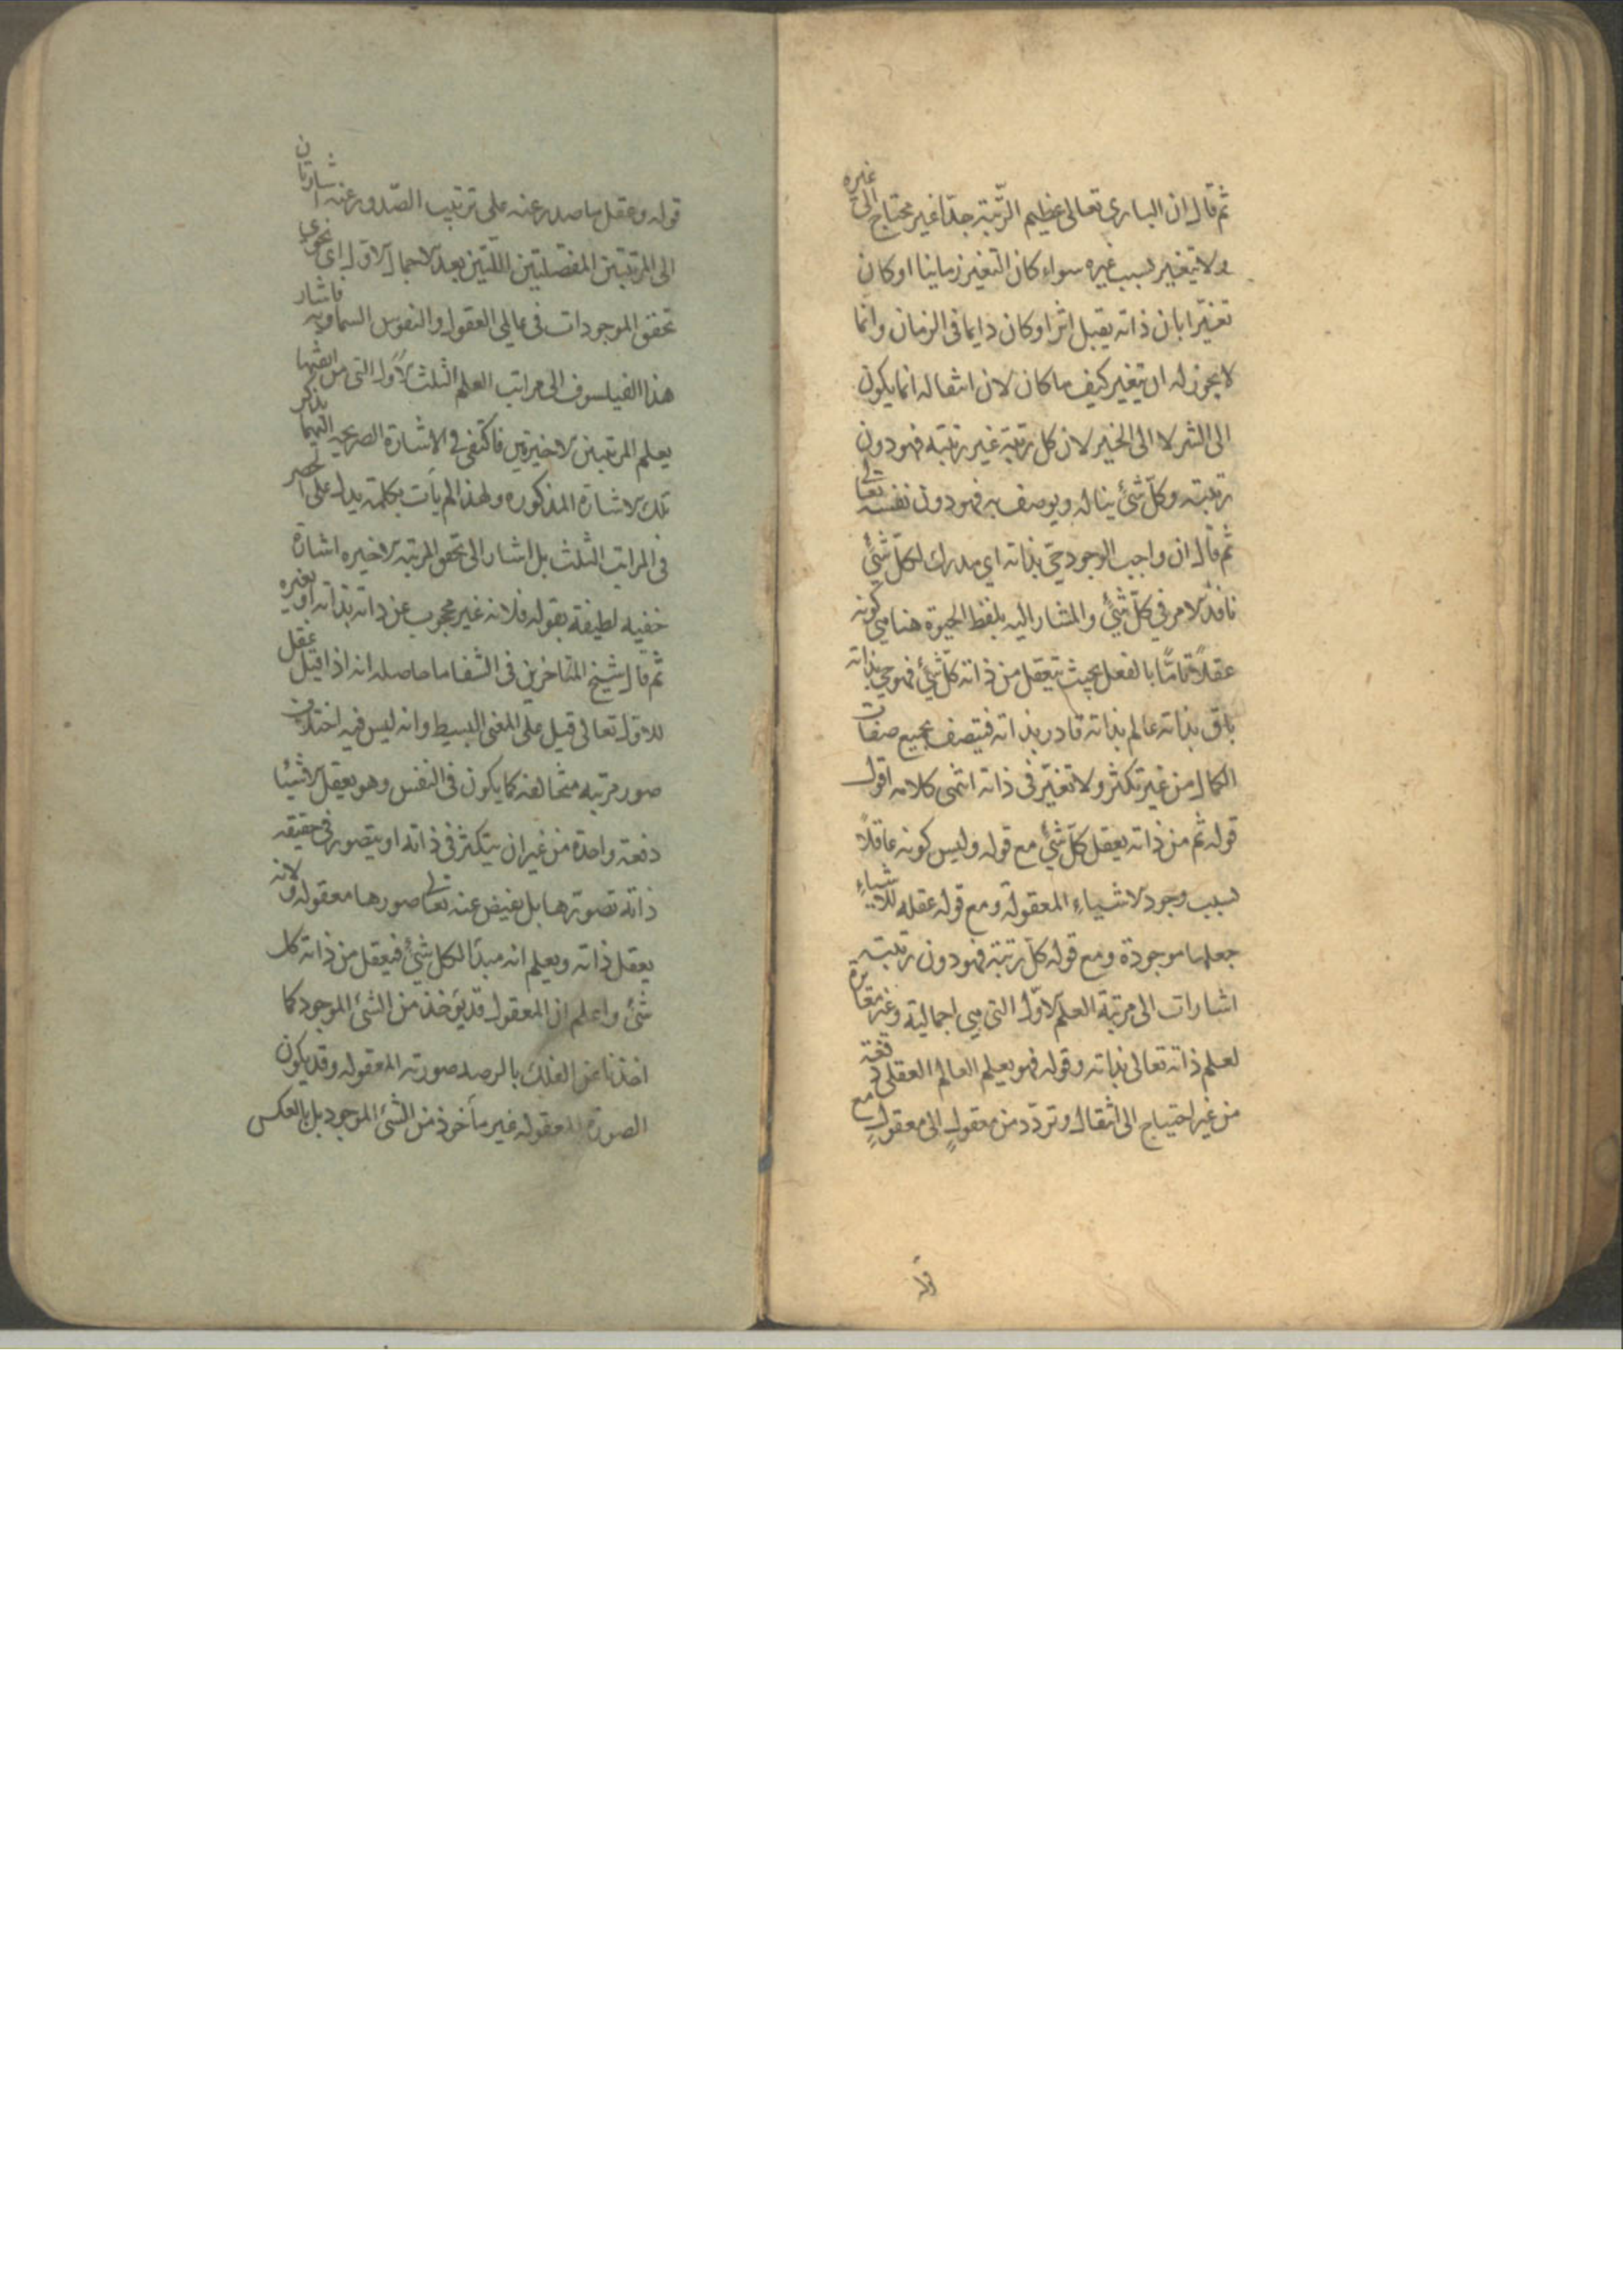 ثم قال ان الباري تعالى عظيم الرّتبة جدّا غير محتاج الى غيره
ولا يتغير بسبب غيره سواء كان التغير زمانيا او كان
تغيّرا بان ذاته يقبل اثرا وكان دايما في الزمان وانما
لا يجوز له ان يتغير كيف ما كان لان انتقاله انما يكون
الى الشر لا الى الخير لان كل رتبة غير رتبته فهو دون
رتبته وكلّ شئ يناله ويوصف به فهو دون نفسه تعالى
ثم قال ان واجب الوجود حيّ بذاته اي مدرك لكلّ شئ
نافذ الامر في كلّ شئ والمشار اليه بلفظ الحيوة هنا هي كونه
عقلاً تامّا بالفعل بحيث يتعقل من ذاته كلّ شئ فهو حي بذاته
باق بذاته عالم بذاته قادر بذاته فيتصف بجميع صفات
الكمال من غير تكثر ولا تغيّر في ذاته انتهى كلامه اقول
قوله ثم من ذاته يعقل كلّ شئ مع قوله وليس كونه عاقلاً
بسبب وجود الاشياء المعقولة ومع قوله عقله للاشياء
جعلها موجودة ومع قوله كلّ رتبة فهو دون رتبته
اشارات الى مرتبة العلم الاوّل التي هي اجمالية وغير مغايرة
لعلم ذاته تعالى بذاته وقوله فهو يعلم العالم العقلي دفعة
من غير احتياج الى انتقال وتردّد من معقولٍ الى معقولٍ مع
قوله
قوله وعقل ما صدر عنه على ترتيب الصّدور عنه اشارتان
الى المرتبتين المفصّلتين اللّتين بعد الاجمال الاول اى نحوي
تحقق الموجودات في عالمي العقول والنفوس السماوية فاشار
هذا الفيلسوف الى مراتب العلم الثلث الاُوَل التي من اثبتها
يعلم المرتبتين الاخيرتين فاكتفى في الاشارة الصريحة اليهما بذكر
تلك الاشارة المذكوره ولهذا لم يأت بكلمة يدل على الحصر
في المراتب الثلث بل اشار الى تحقق المرتبة الاخيره اشارة
خفيه لطيفة بقوله فلانه غير محجوب عن ذاته بذاته او بغيره
ثم قال شيخ المتاخرين في الشفا ما حاصله انه اذا قيل عقل
للاول تعالى قيل على المعنى البسيط وانه ليس فيه اختلاف
صور مرتبه متخالفه كما يكون في النفس وهو يعقل الاشيا
دفعة واحدة من غير ان يتكثر في ذاته او يتصور في حقيقه
ذاته تصوّرها بل تفيض عنه تعالى صورها معقوله ولانه
يعقل ذاته ويعلم انه مبدأ لكل شئ فيعقل من ذاته كل
شئ واعلم ان المعقول قد يؤخذ من الشئ الموجود كما
اخذنا عن الفلك بالرصد صورته المعقوله وقد يكون
الصورة المعقوله غير مأخوذ من الشئ الموجود بل بالعكس